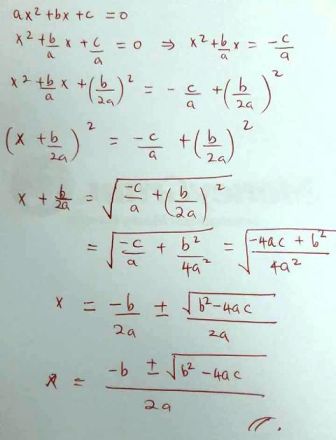 ax² + bx + c = 0
x² + b/a x + c/a = 0 ⇒ x² + b/a x = -c/a
x² + b/a x + (b/2a)² = -c/a + (b/2a)²
(x + b/2a)² = -c/a + (b/2a)²
x + b/2a = √(-c/a + (b/2a)²)
= √(-c/a + b²/4a²) = √((-4ac + b²)/4a²)
x = -b/2a ± √(b² - 4ac)/2a
x = (-b ± √(b² - 4ac))/2a